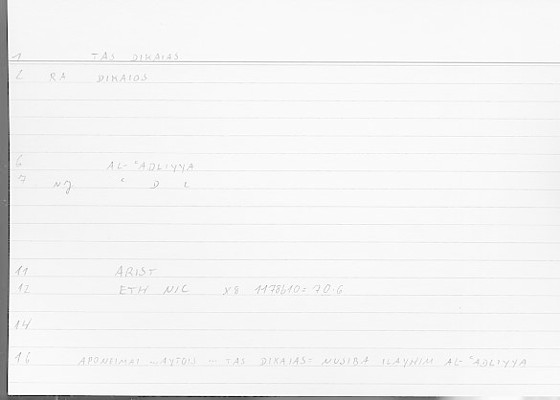 1 TAS DIKAIAS
2 RA DIKAIOS
6 AL-ʿADLIYYA
7 NJ ʿ D L
11 ARIST
12 ETH NIC X8 1178b10 = 70.6
14
16 APONEIMAI ... AYTOIS ... TAS DIKAIAS = MUSIBA ILAYHIM AL-ʿADLIYYA